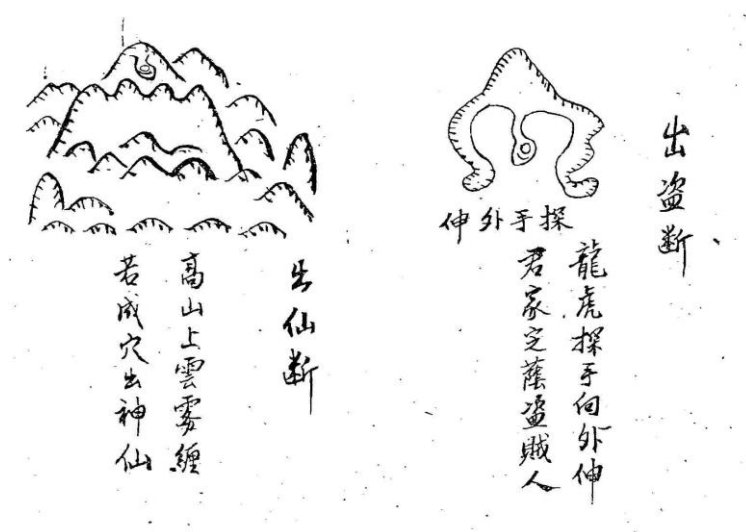 出盗断
探手外伸
龍虎探手向外伸
君家定蔭盗賊人
出仙断
高山上雲雾纏
若成穴出神仙